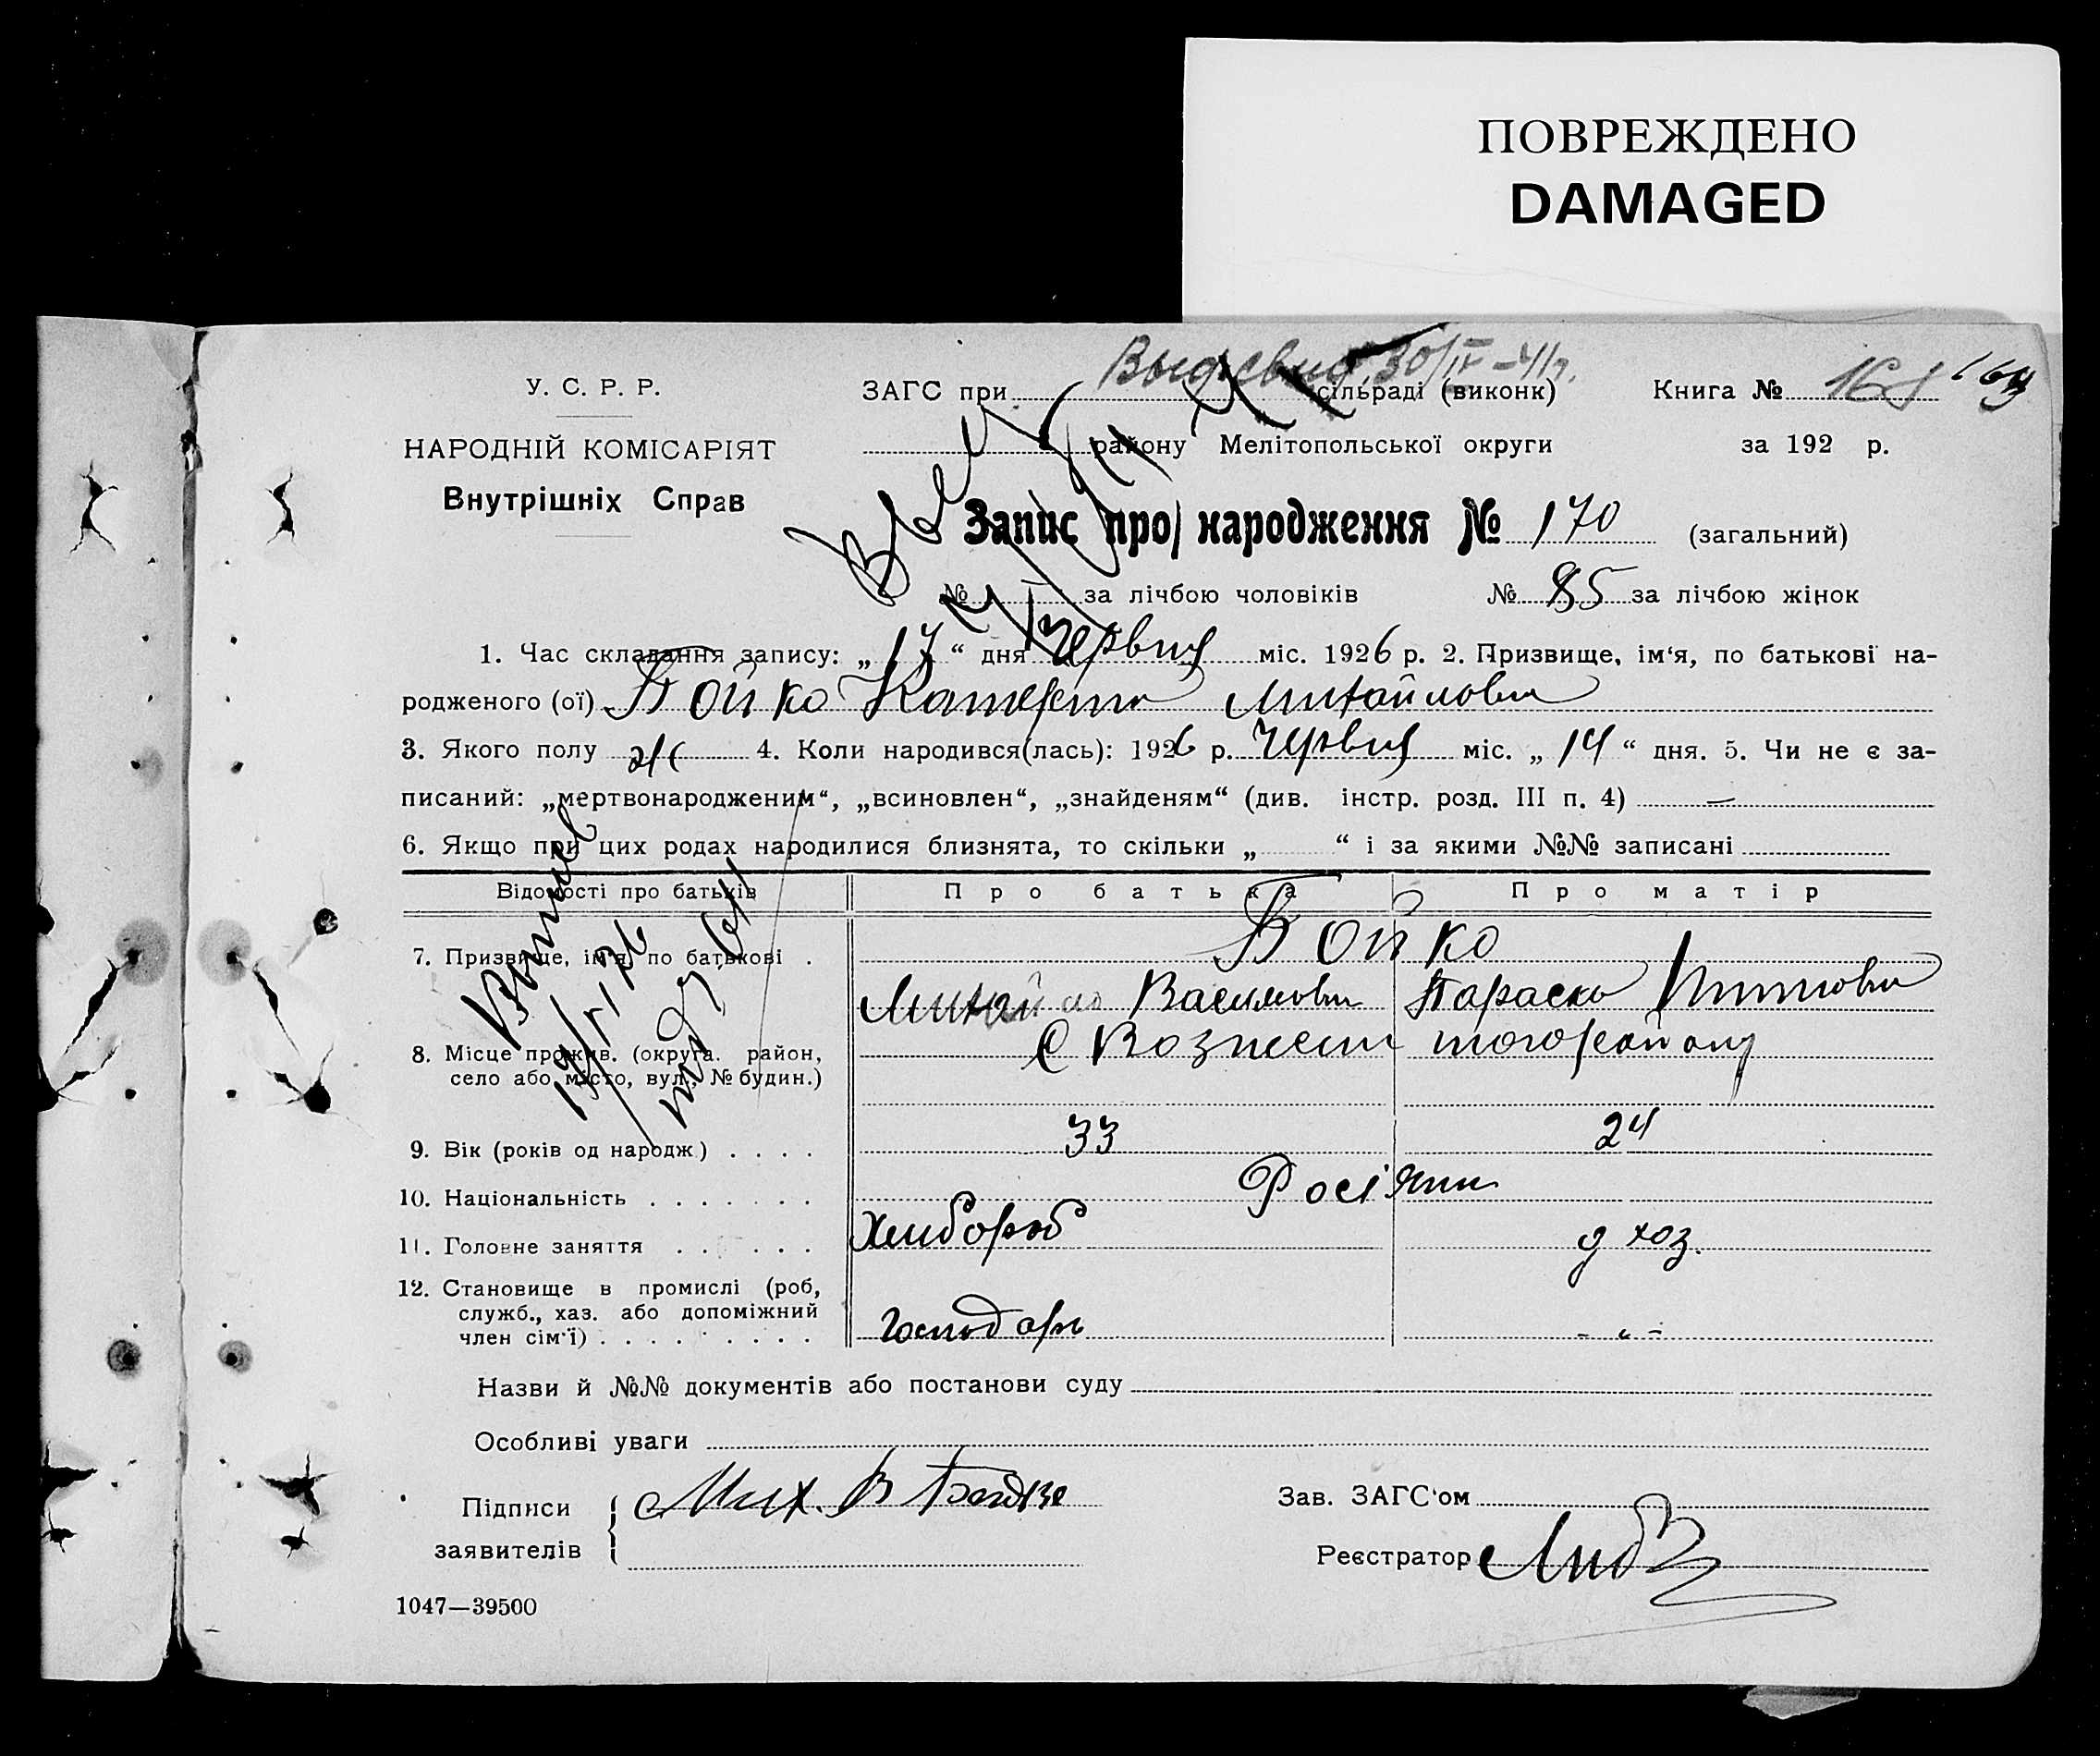 ПОВРЕЖДЕНО
DAMAGED
У. С. Р. Р.
НАРОДНІЙ КОМІСАРІЯТ
Внутрішніх Справ
ЗАГС при сільраді (виконк)
району Мелітопольської округи
Книга №
за 192 р.
Запис про народження № 170 (загальний)
№ за лічбою чоловіків № 85 за лічбою жінок
1. Час складання запису: „17“ дня Червня міс. 1926 р. 2. Призвище, ім‘я, по батькові на-
родженого (ої) Бойко Катерина Михайловна
3. Якого полу ж 4. Коли народився(лась): 1926 р. Червня міс. „14“ дня. 5. Чи не є за-
писаний: „мертвонародженим“, „всиновлен“, „знайденям“ (див. інстр. розд. III п. 4) —
6. Якщо при цих родах народилися близнята, то скільки „ “ і за якими №№ записані
Відомості про батьків Про батька Про матір
7. Призвище, ім‘я, по батькові . Бойко
Михайло Васильович Параска
8. Місце прожив. (округа. район, С Вознесен того району
село або місто, вул., № будин.)
9. Вік (років од народж.) . . . . 33 24
10. Національність . . . . . . . Росіяни
11. Головне заняття . . . . . . Хлибороб д хоз.
12. Становище в промислі (роб,
служб., хаз. або допоміжний
член сім‘ї) . . . . . . . . . Господарь - „ -
Назви й №№ документів або постанови суду
Особливі уваги
Підписи Мих. В Бойко
заявителів
Зав. ЗАГС‘ом
Реєстратор
1047—39500